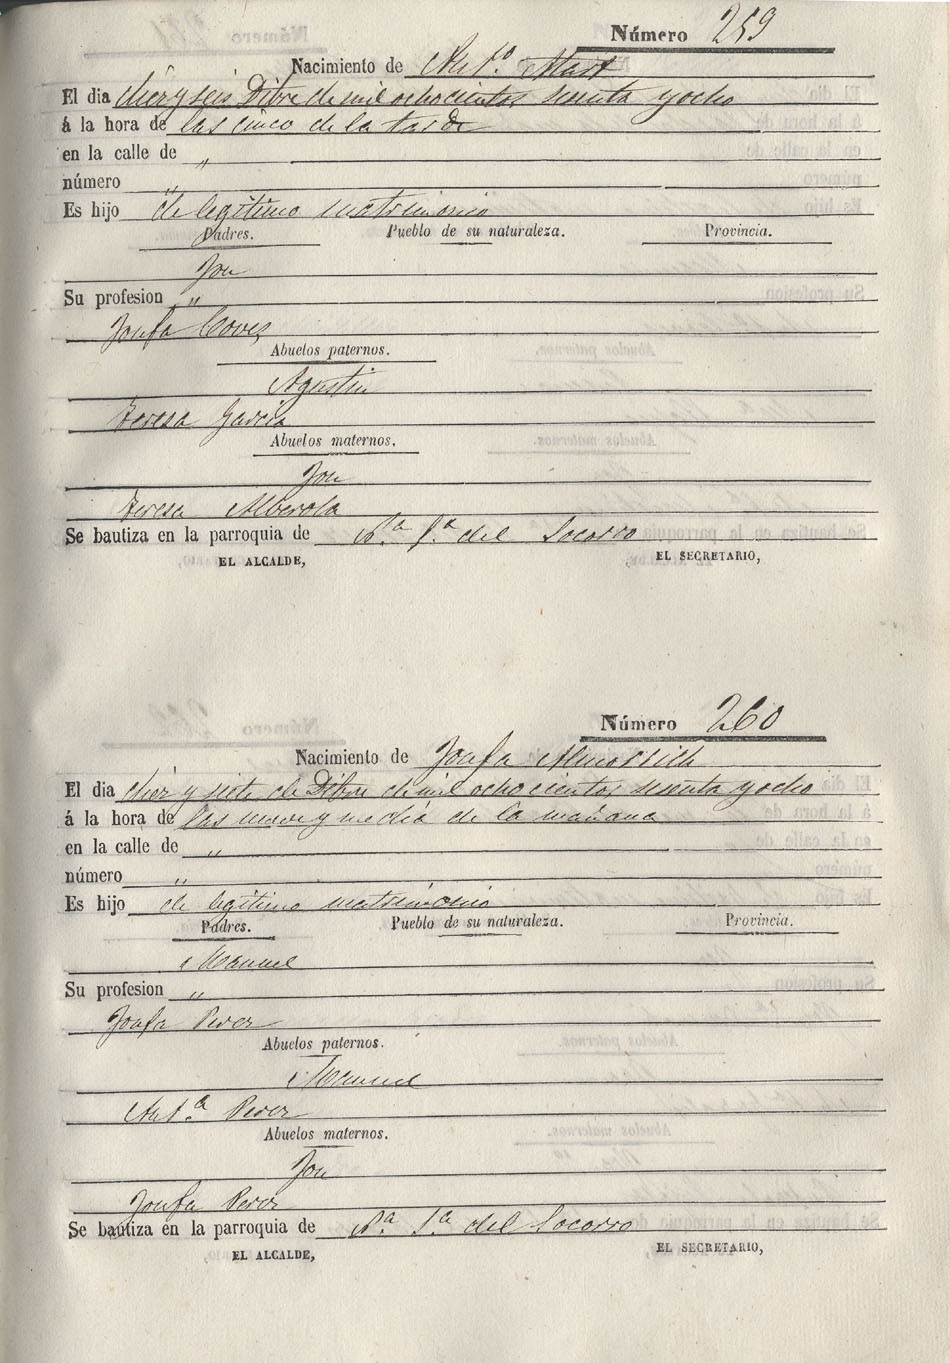 Número 259
Nacimiento de Ant.º Mas
El dia diez y seis Dibre de mil ochocientos sesenta y ocho
á la hora de las cinco de la tarde
en la calle de „
número „
Es hijo de legitimo matrimonio
Padres. Pueblo de su naturaleza. Provincia.
Jose
Su profesion „
Josefa Coves
Abuelos paternos.
Agustin
Teresa Garcia
Abuelos maternos.
Jose
Teresa Alberola
Se bautiza en la parroquia de N.ª S.ª del Socorro
EL ALCALDE, EL SECRETARIO,
Número 260
Nacimiento de Josefa
El dia diez y siete de Dibre de mil ochocientos sesenta y ocho
á la hora de las nueve y media de la mañana
en la calle de „
número „
Es hijo de legitimo matrimonio
Padres. Pueblo de su naturaleza. Provincia.
Manuel
Su profesion „
Josefa Perez
Abuelos paternos.
Manuel
Ant.ª Perez
Abuelos maternos.
Jose
Josefa Perez
Se bautiza en la parroquia de N.ª S.ª del Socorro
EL ALCALDE, EL SECRETARIO,